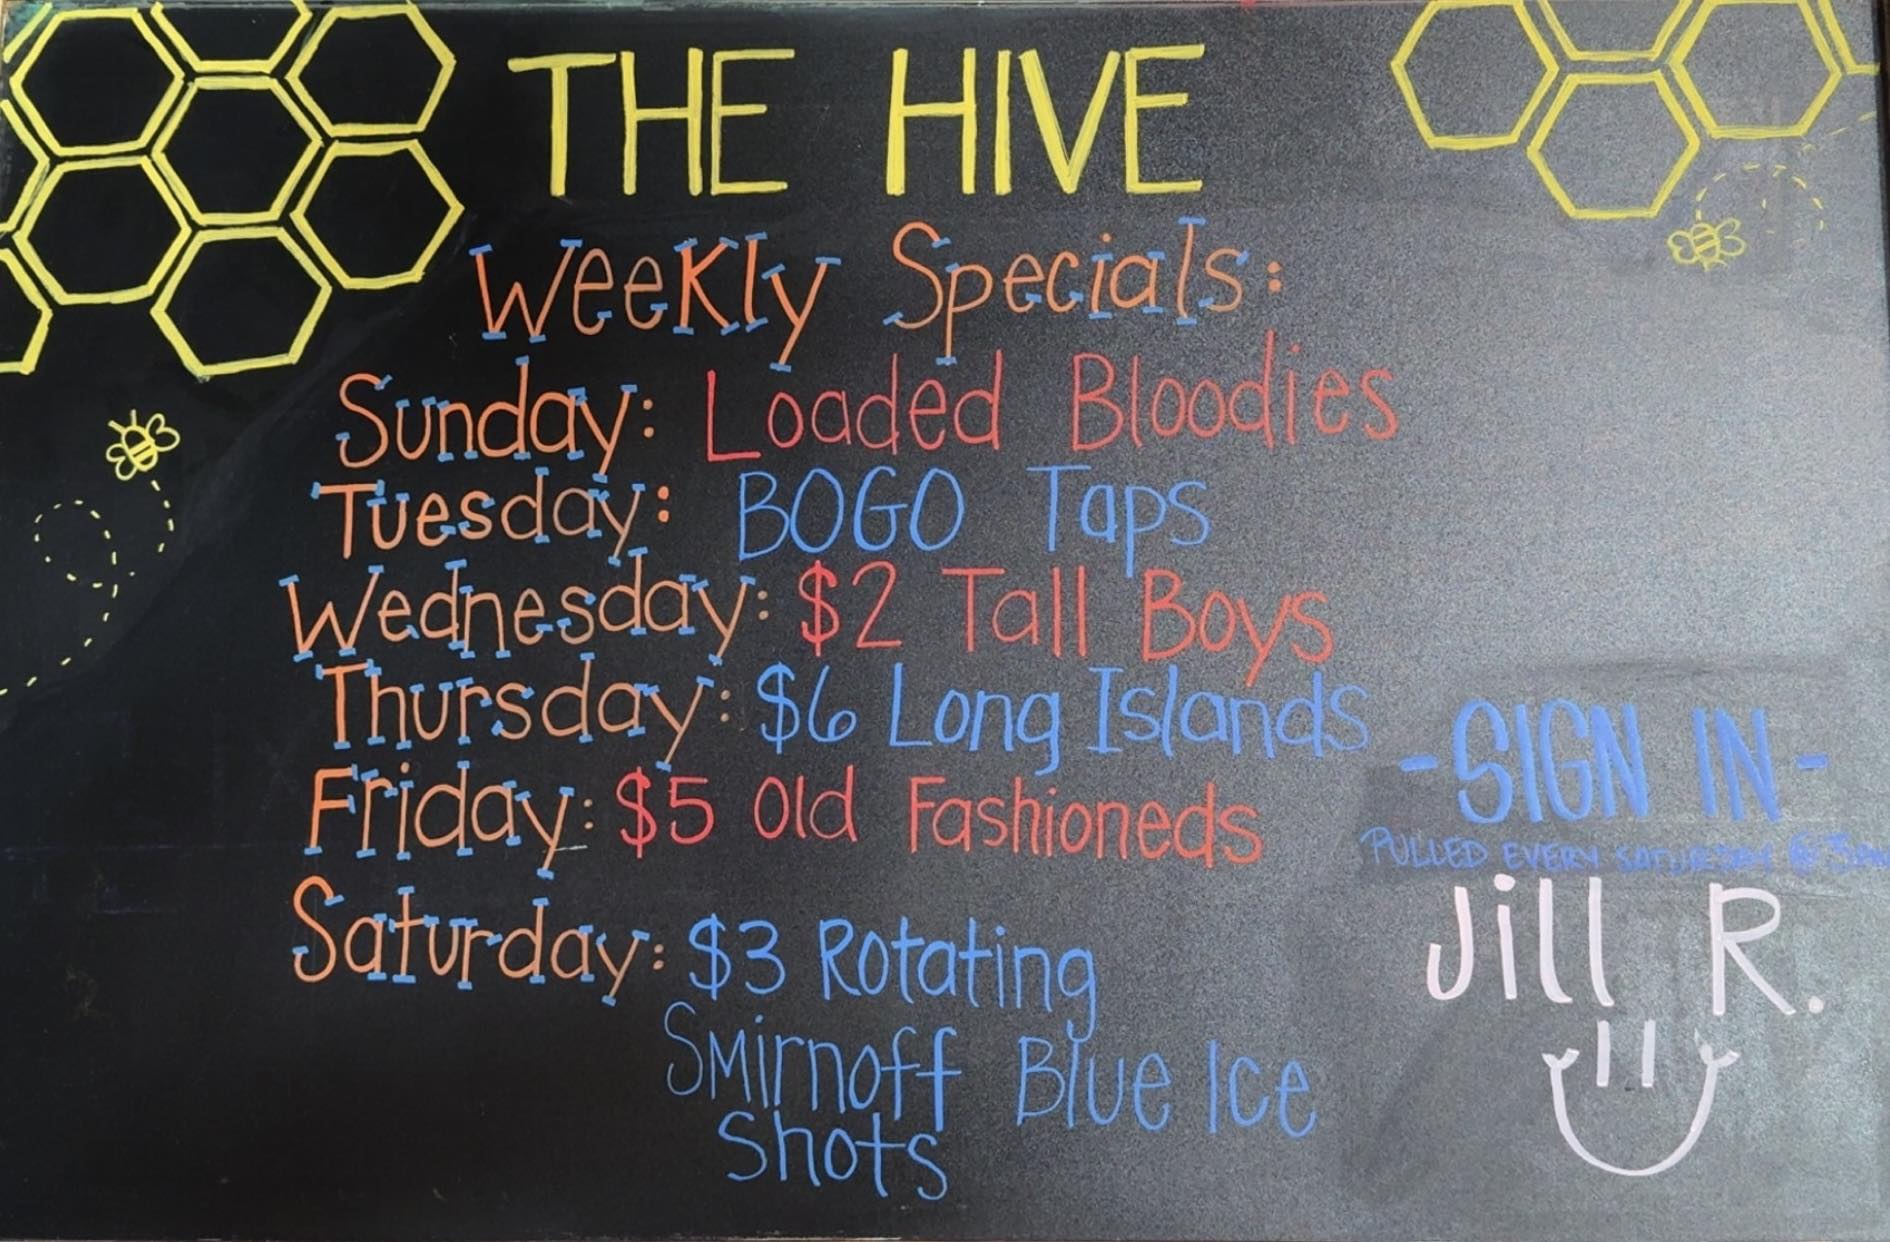 THE HIVE
Weekly Specials:
Sunday: Loaded Bloodies
Tuesday: BOGO Taps
Wednesday: $2 Tall Boys
Thursday: $6 Long Islands
Friday: $5 Old Fashioneds
Saturday: $3 Rotating
Smirnoff Blue Ice
Shots
-SIGN IN-
PULLED EVERY SATURDAY @
Jill R.